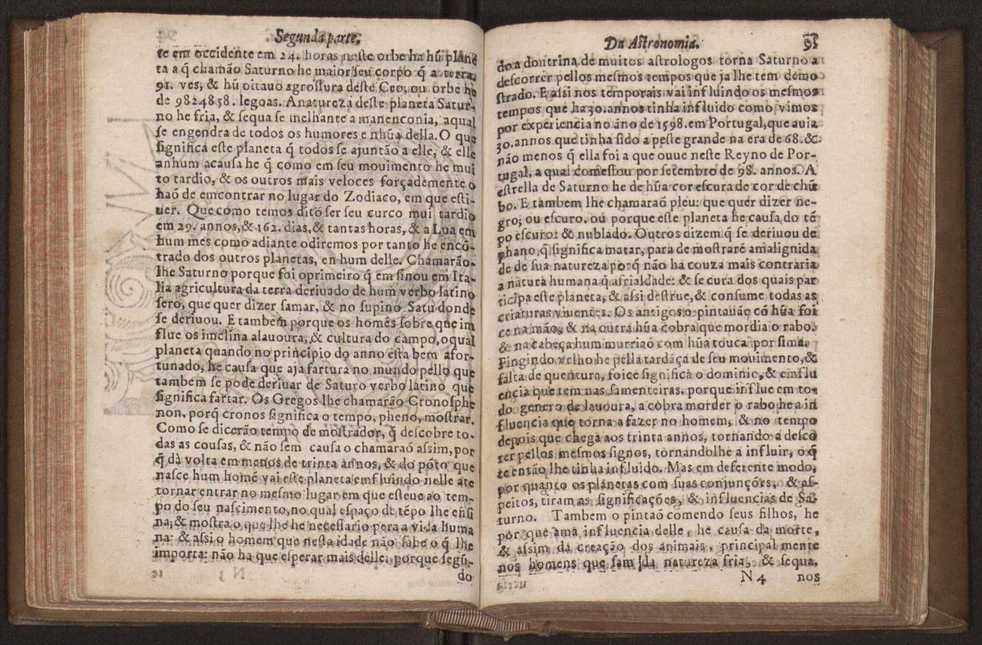 Segunda parte,
te em occidente em 24. horas neste orbe ha hũ planè
ta a q̃ chamão Saturno he maior seu corpo q̃ a terra
91. ves, & hũ oitauo agrossura deste Ceo, ou orbe he
de 9824858. legoas. A natureza deste planeta Satur-
no he fria, & sequa semelhante a manenconia, aqual
se engendra de todos os humores e nhũa della. O que
significa este planeta q̃ todos se ajuntão a elle, & elle
anhum acausa he q̃ como em seu mouimento he mui
to tardio, & os outros mais veloces forçadèmente o
haõ de emcontrar no lugar do Zodiaco, em que esti-
uer. Que como temos dito ser seu curco mui tardio
em 29. annos, & 162. dias, & tantas horas, & a Lua em
hum mes como adiante odiremos por tanto he encõ-
trado dos outros planetas, en hum delle. Chamarão-
lhe Saturno porque foi oprimeiro q̃ em sinou em Ita-
lia agricultura da terra deriuado de hum verbo latino
sero, que quer dizer samar, & no supino Satu donde
se deriuou. E tambem porque os homẽs sobre que im
flue os imclina alauoura, & cultura do campo, oqual
planeta quando no principio do anno esta bem afor-
tunado, he causa que aja fartura no mundo pello que
tambem se pode deriuar de Saturo verbo latino que
significa fartar. Os Gregos lhe chamarão Cronosphe
non, porq̃ cronos significa o tempo, pheno, mostrar.
Como se dicerão tempo de mostrador, q̃ descobre to-
das as cousas, & não sem causa o chamaraõ assim, por
q̃ dà volta em menos de trinta annos, & do põto que
nasce hum homẽ vai este planeta emfluindo nelle atè
tornar entrar no mesmo lugar em que esteue ao tem-
po do seu nascimento, no qual espaço de tẽpo lhe ensi
na, & mostra o que lhe he necessario pera a vida huma
na: & assi o homem que nesta idade não sabe o q̃ lhe
importa: não ha que esperar mais delle: porque segũ-
do
Da Astronomia.
91
do a doutrina de muitos astrologos torna Saturno a
descorrer pellos mesmos tempos que ja lhe tem demo
strado. E assi nos temporais vai influindo os mesmos
tempos que ha 30. annos tinha influido como vimos
por experiencia no âno de 1598. em Portugal, que auia
30. annos que tinha sido a peste grande na era de 68. &
não menos q̃ ella foi a que ouue neste Reyno de Por-
tugal, a qual comestou por setembro de 98. annos. A
estrella de Saturno he de hũa cor escura de cor de chũ
bo. E tambem lhe chamaraõ pleu: que quer dizer ne-
gro, ou escuro. ou porque este planeta he causa do tẽ
po escuro: & nublado. Outros dizem q̃ se deriuou de
phano, q̃ significa matar, para demostrarẽ amalignida
de de sua natureza porq̃ não ha couza mais contraria
a natura humana q̃ a frialdade: & secura dos quais par
ticipa este planeta, & assi destrue, & consume todas as
criaturas viuentes. Os antigos o pintauão cõ hũa foi
ce na mão, & na outra hũa cobra que mordia o rabo.
& na cabeça hum murrião com hũa touca por sima.
Fingindo velho he pella tardãça de seu mouimento, &
falta de quentura, foice significa o dominio, & emflu
encia que tem nas sementeiras. porque influe em to-
do genero de lauoura, a cobra morder o rabo he a in
fluencia que torna a fazer no homem, & no tempo
depois que chega aos trinta annos, tornando a desco
rer pellos mesmos signos, tornandolhe a influir, o q̃
te então lhe tinha influido. Mas em deferente modo,
por quanto os planetas com suas conjunções, & as-
peitos, tiram as significações, & influencias de Sa-
turno. Tambem o pintaõ comendo seus filhos, he
por que ama influencia delle, he causa da morte,
& assim da creação dos animais, principal mente
nos homens que sam da natureza fria, & sequa,
N 4 nos